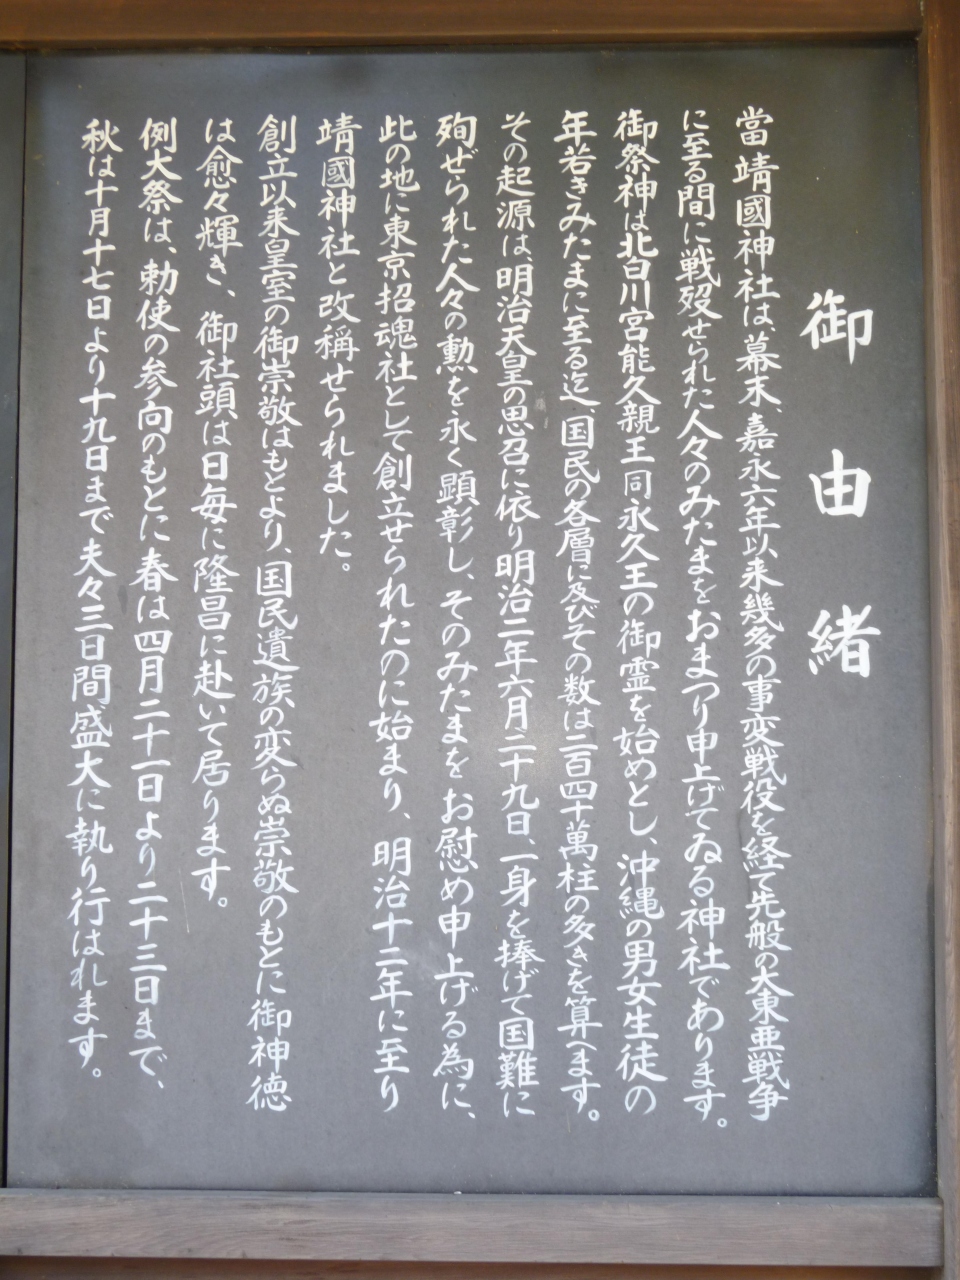 御由緒
當靖國神社は、幕末、嘉永六年以来幾多の事変戦役を経て先般の大東亜戦争
に至る間に戦歿せられた人々のみたまをおまつり申上げてゐる神社であります。
御祭神は北白川宮能久親王同永久王の御霊を始めとし、沖縄の男女生徒の
年若きみたまに至る迄、国民の各層に及びその数は二百四十萬柱の多きを算へます。
その起源は、明治天皇の思召に依り明治二年六月二十九日、一身を捧げて国難に
殉ぜられた人々の勲を永く顕彰し、そのみたまをお慰め申上げる為に、
此の地に東京招魂社として創立せられたのに始まり、明治十二年に至り
靖國神社と改稱せられました。
創立以来皇室の御崇敬はもとより、国民遺族の変らぬ崇敬のもとに御神徳
は愈々輝き、御社頭は日毎に隆昌に赴いて居ります。
例大祭は、勅使の参向のもとに春は四月二十一日より二十三日まで、
秋は十月十七日より十九日まで夫々三日間盛大に執り行はれます。